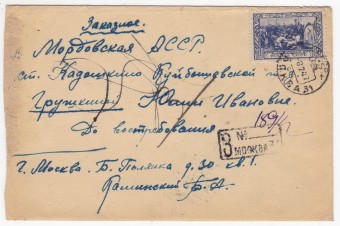 Заказное.
Мордовская АССР.
ст. Кадошкино Куйбышевской
Грушкиной Юлии Ивановне.
До востребования
189/4
З №
МОСКВА
г. Москва. Б. Полянка д. 30 кв. 1.
Б. А.